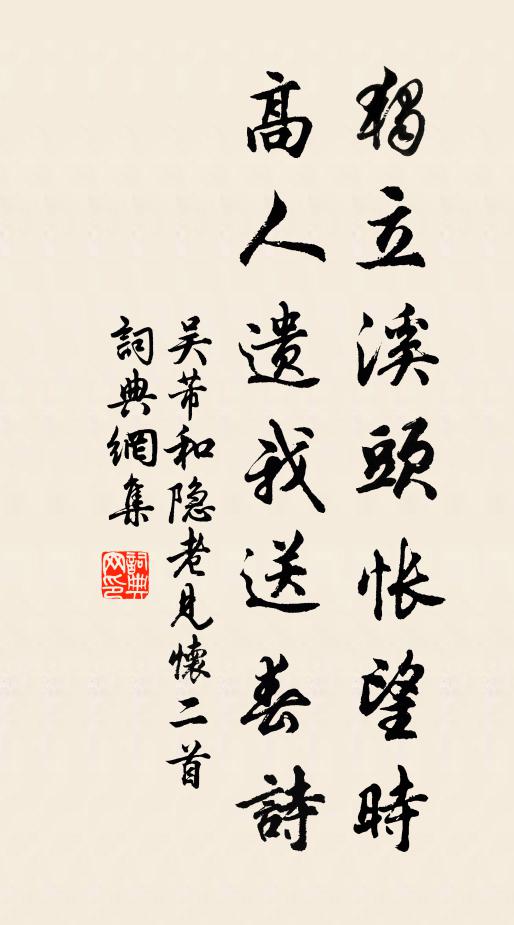 獨立溪頭悵望時
高人遺我送春詩
吳芾和隐老見懷二首
詞典網集
詞典網印